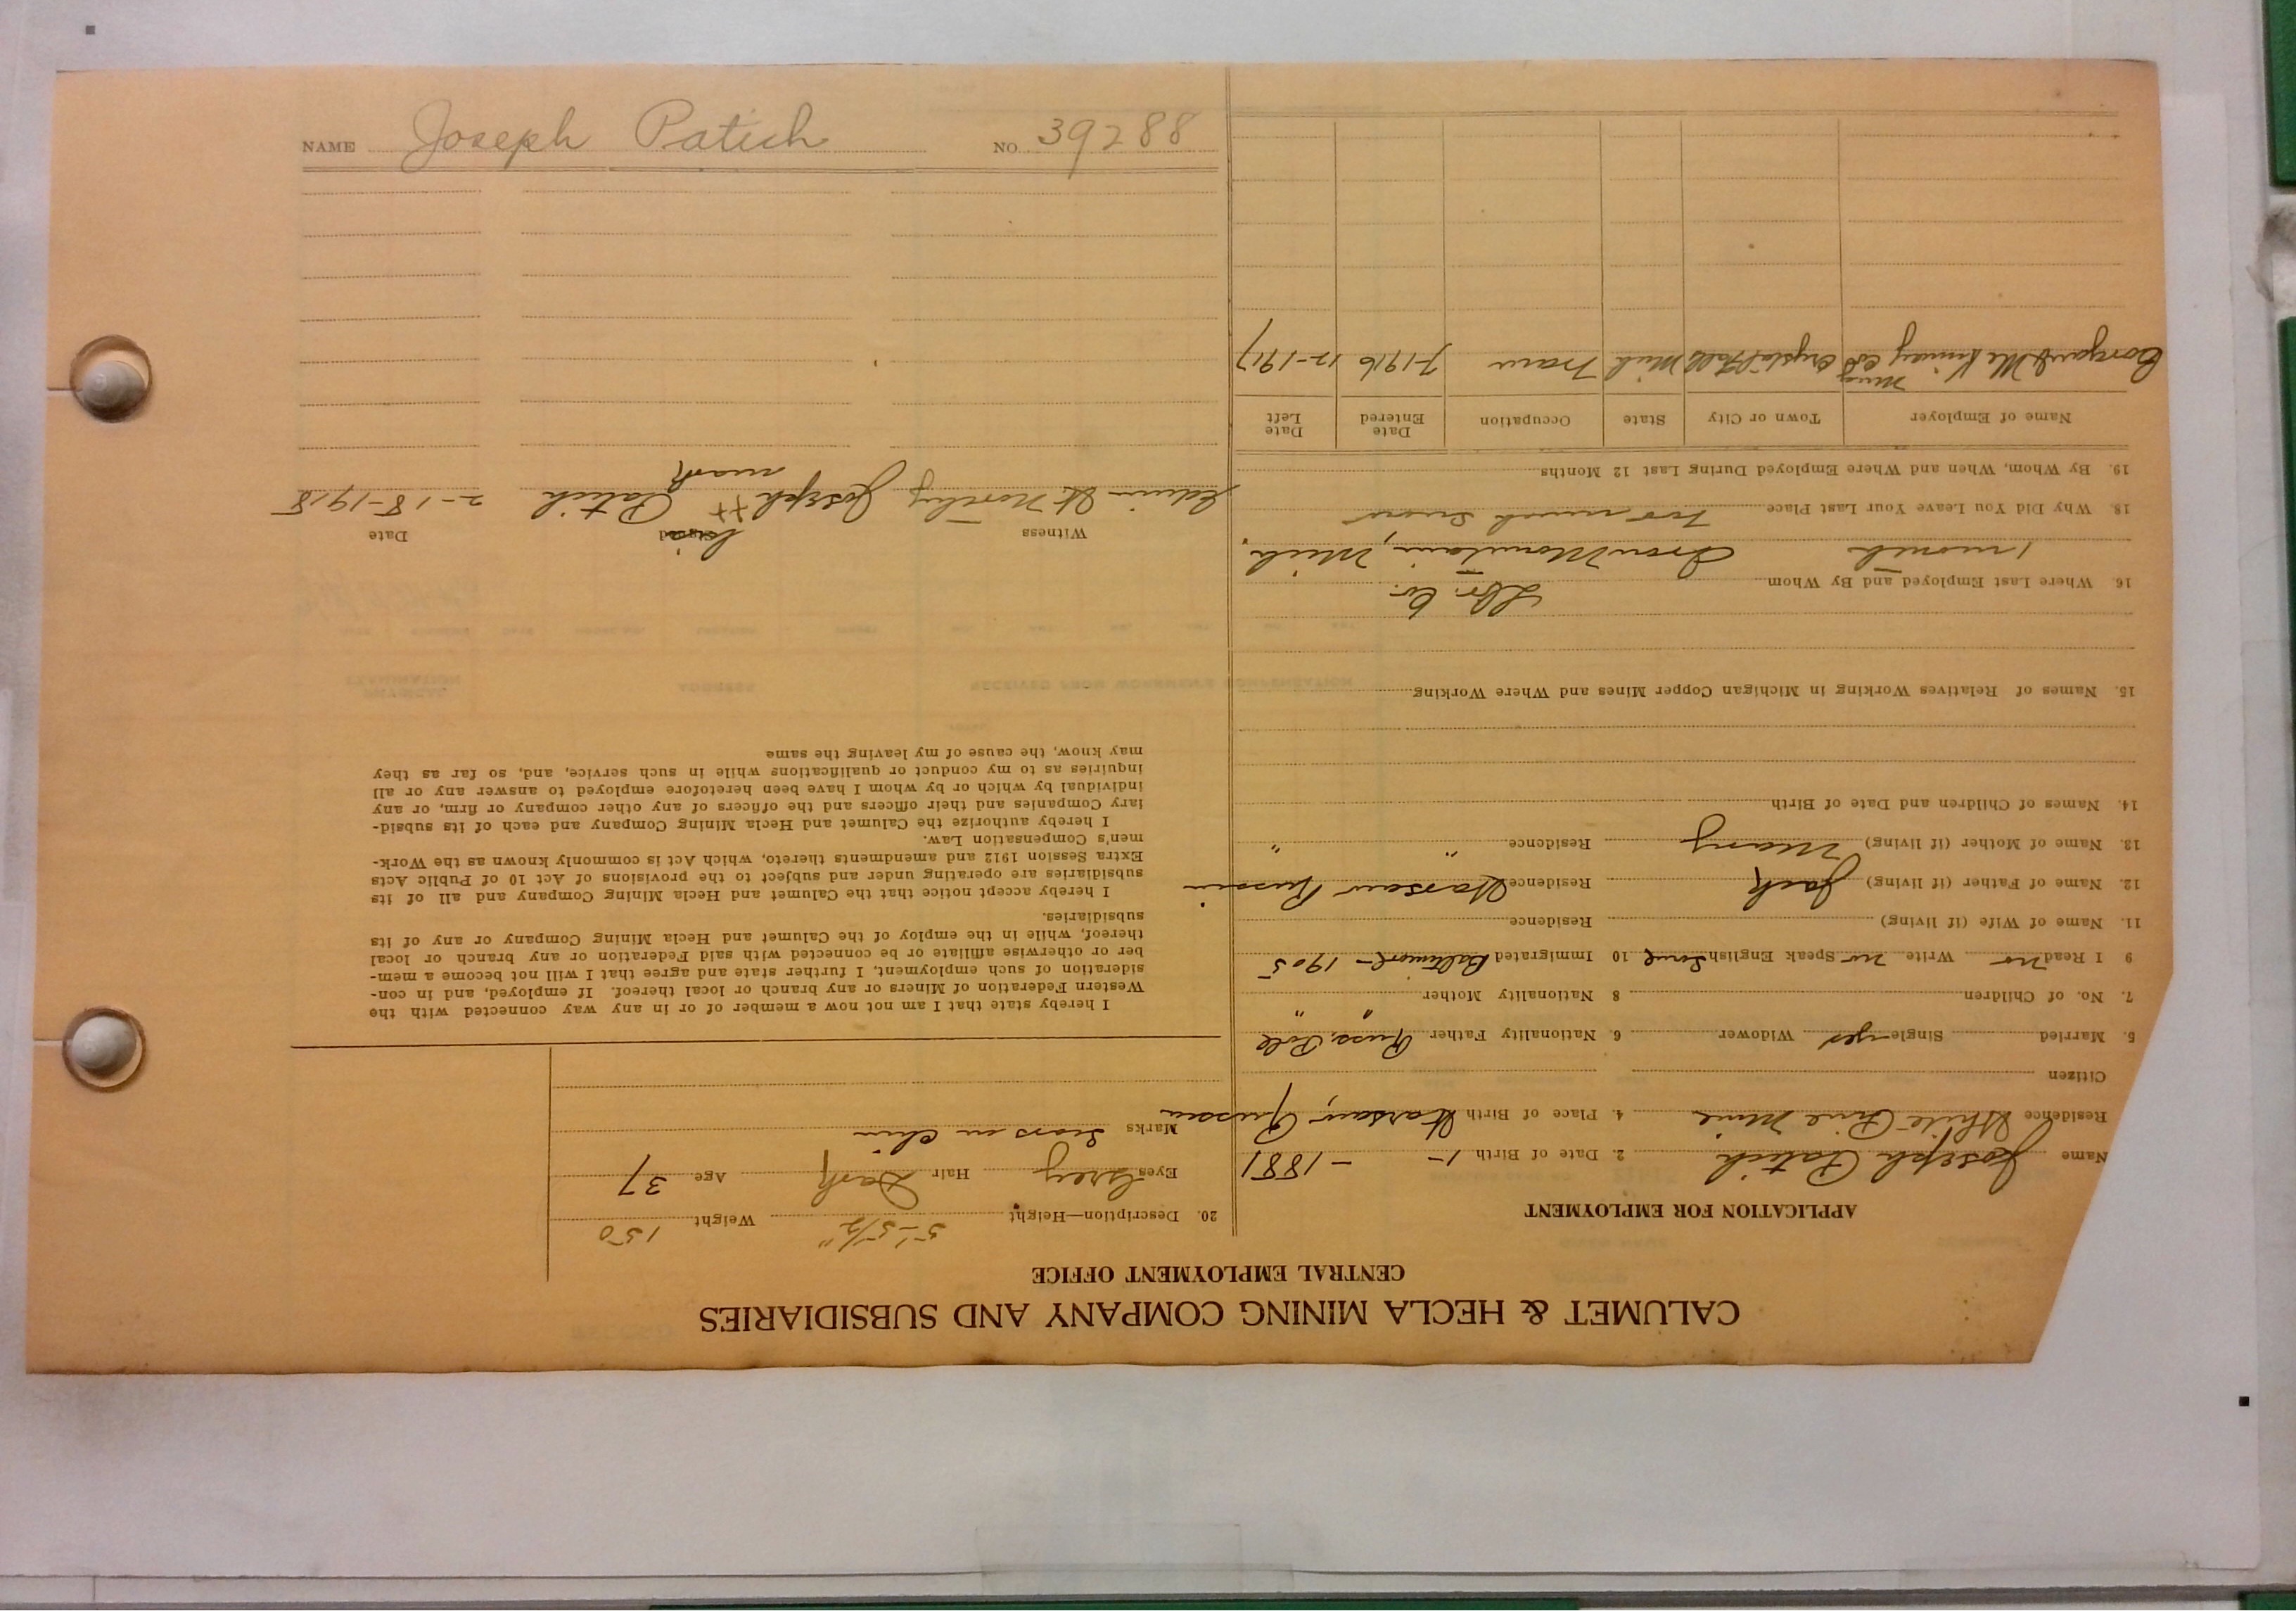 CALUMET & HECLA MINING COMPANY AND SUBSIDIARIES
CENTRAL EMPLOYMENT OFFICE
APPLICATION FOR EMPLOYMENT
Name Joseph Patich 2. Date of Birth 1- - 1881
Residence White Pine Mine 4. Place of Birth Warsaw, Russia
Citizen
5. Married Single yes Widower 6. Nationality Father Russ. Pole
7. No. of Children 8 Nationality Mother " "
9 I Read no Write no Speak English Some 10 Immigrated Baltimore - 1905
11. Name of Wife (if living) Residence
12. Name of Father (if living) Jack Residence Warsaw Russia
13. Name of Mother (if living) Mary Residence " "
14. Names of Children and Date of Birth
15. Names of Relatives Working in Michigan Copper Mines and Where Working
Lbr. Co.
16. Where Last Employed and By Whom
1 month Iron Mountain, Mich.
18. Why Did You Leave Your Last Place Too much snow
19. By Whom, When and Where Employed During Last 12 Months
Name of Employer Town or City State Occupation Date Entered Date Left
Mc Kinney Crystal Falls Mich Tram 7-1916 12-1917
20. Description—Height 5'-5 1/2" Weight 150
Eyes Grey Hair Dark Age 37
Marks Scars on Chin
I hereby state that I am not now a member of or in any way connected with the
Western Federation of Miners or any branch or local thereof. If employed, and in con-
sideration of such employment, I further state and agree that I will not become a mem-
ber or otherwise affiliate or be connected with said Federation or any branch or local
thereof, while in the employ of the Calumet and Hecla Mining Company or any of its
subsidiaries.
I hereby accept notice that the Calumet and Hecla Mining Company and all of its
subsidiaries are operating under and subject to the provisions of Act 10 of Public Acts
Extra Session 1912 and amendments thereto, which Act is commonly known as the Work-
men's Compensation Law.
I hereby authorize the Calumet and Hecla Mining Company and each of its subsid-
iary Companies and their officers and the officers of any other company or firm, or any
individual by which or by whom I have been heretofore employed to answer any or all
inquiries as to my conduct or qualifications while in such service, and, so far as they
may know, the cause of my leaving the same
Witness Signed his Date
Edwin Joseph XX Patich 2-18-1918
mark
NAME Joseph Patich NO. 39288